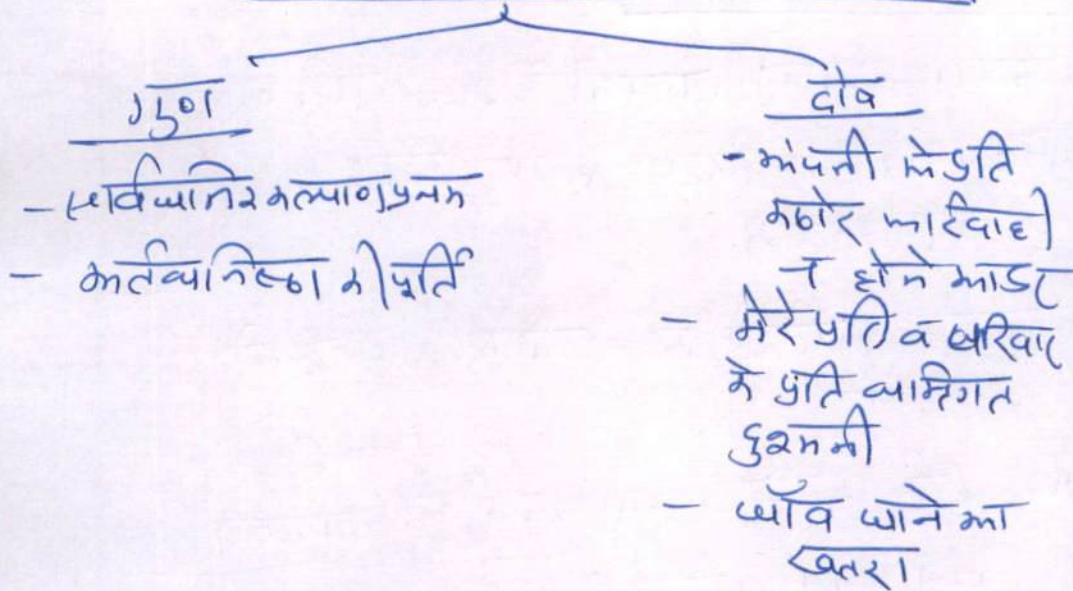 गुण
- सार्वजनिक कल्याण प्रथम
- कर्तव्यनिष्ठा की पूर्ति
दोष
- कंपनी के प्रति
कठोर कार्रवाही
न होने का डर
- मेरे प्रति व परिवार
के प्रति व्यक्तिगत
दुश्मनी
- जॉब जाने का
खतरा